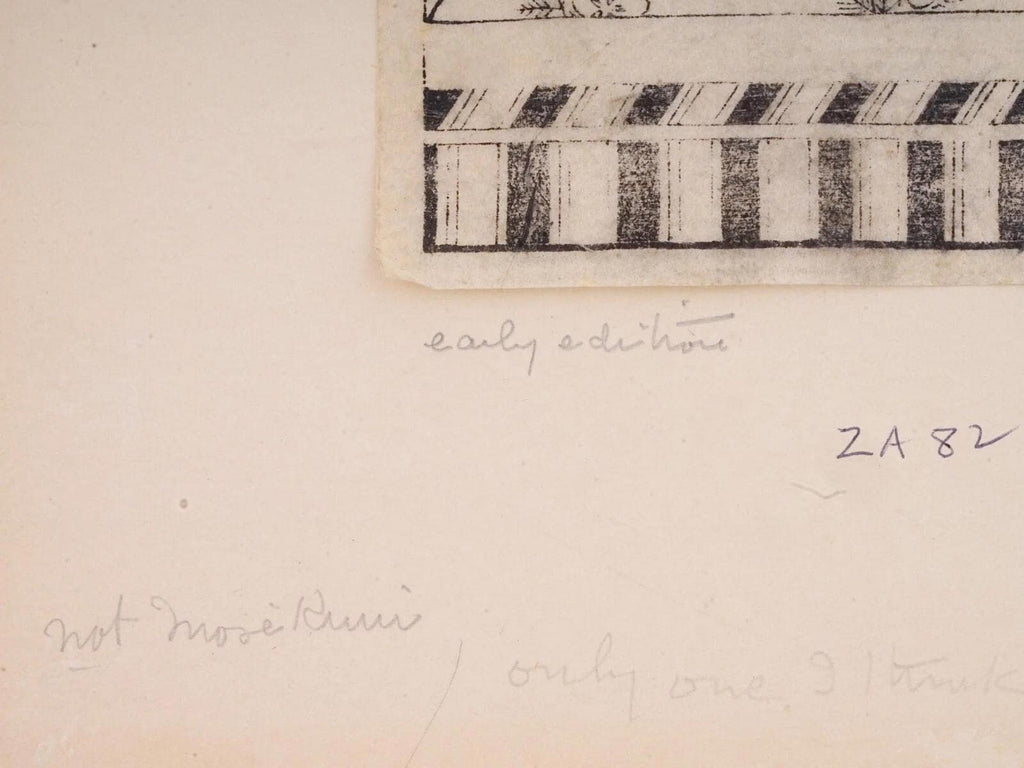 early edition
ZA 82
not
only one I think